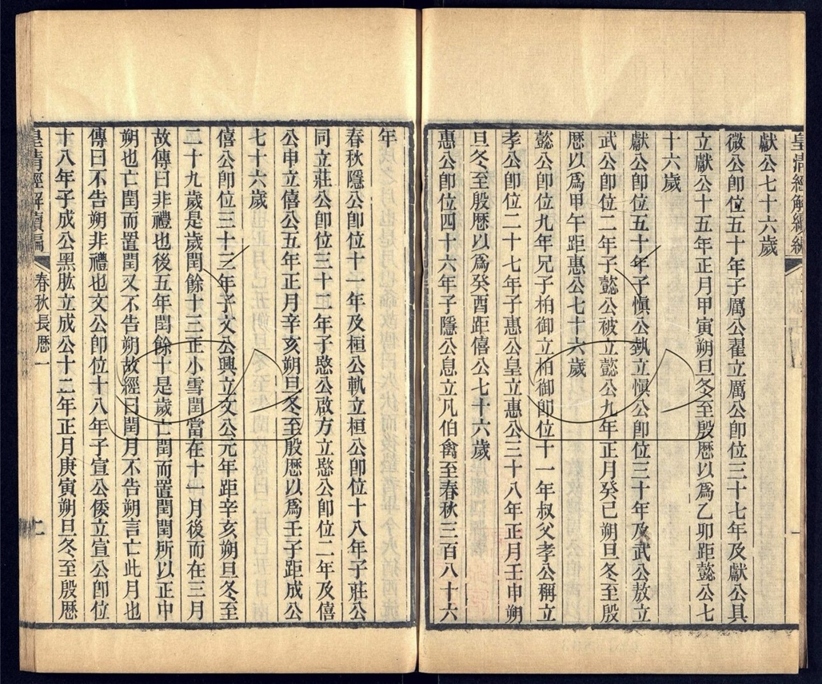 皇清經解續編
獻公七十六歲
微公卽位五十年子厲公翟立厲公卽位三十七年及獻公具
立獻公十五年正月甲寅朔旦冬至殷厤以爲乙卯距懿公七
十六歲
獻公卽位五十年子愼公埶立愼公卽位三十年及武公敖立
武公卽位二年子懿公被立懿公九年正月癸巳朔旦冬至殷
厤以爲甲午距惠公七十六歲
懿公卽位九年兄子柏御立柏御卽位十一年叔父孝公稱立
孝公卽位二十七年子惠公皇立惠公三十八年正月壬申朔
旦冬至殷厤以爲癸酉距僖公七十六歲
惠公卽位四十六年子隱公息立凡伯禽至春秋三百八十六
年
春秋隱公卽位十一年及桓公軌立桓公卽位十八年子莊公
同立莊公卽位三十二年子愍公啟方立愍公卽位二年及僖
公申立僖公五年正月辛亥朔旦冬至殷厤以爲壬子距成公
七十六歲
僖公卽位三十三年子文公興立文公元年距辛亥朔旦冬至
二十九歲是歲閏餘十三正小雪閏當在十一月後而在三月
故傳曰非禮也後五年閏餘十是歲亡閏而置閏閏所以正中
朔也亡閏而置閏又不告朔故經曰閏月不告朔言亡此月也
傳曰不告朔非禮也文公卽位十八年子宣公倭立宣公卽位
十八年子成公黑肱立成公十二年正月庚寅朔旦冬至殷厤
皇清經解續編
春秋長厤一